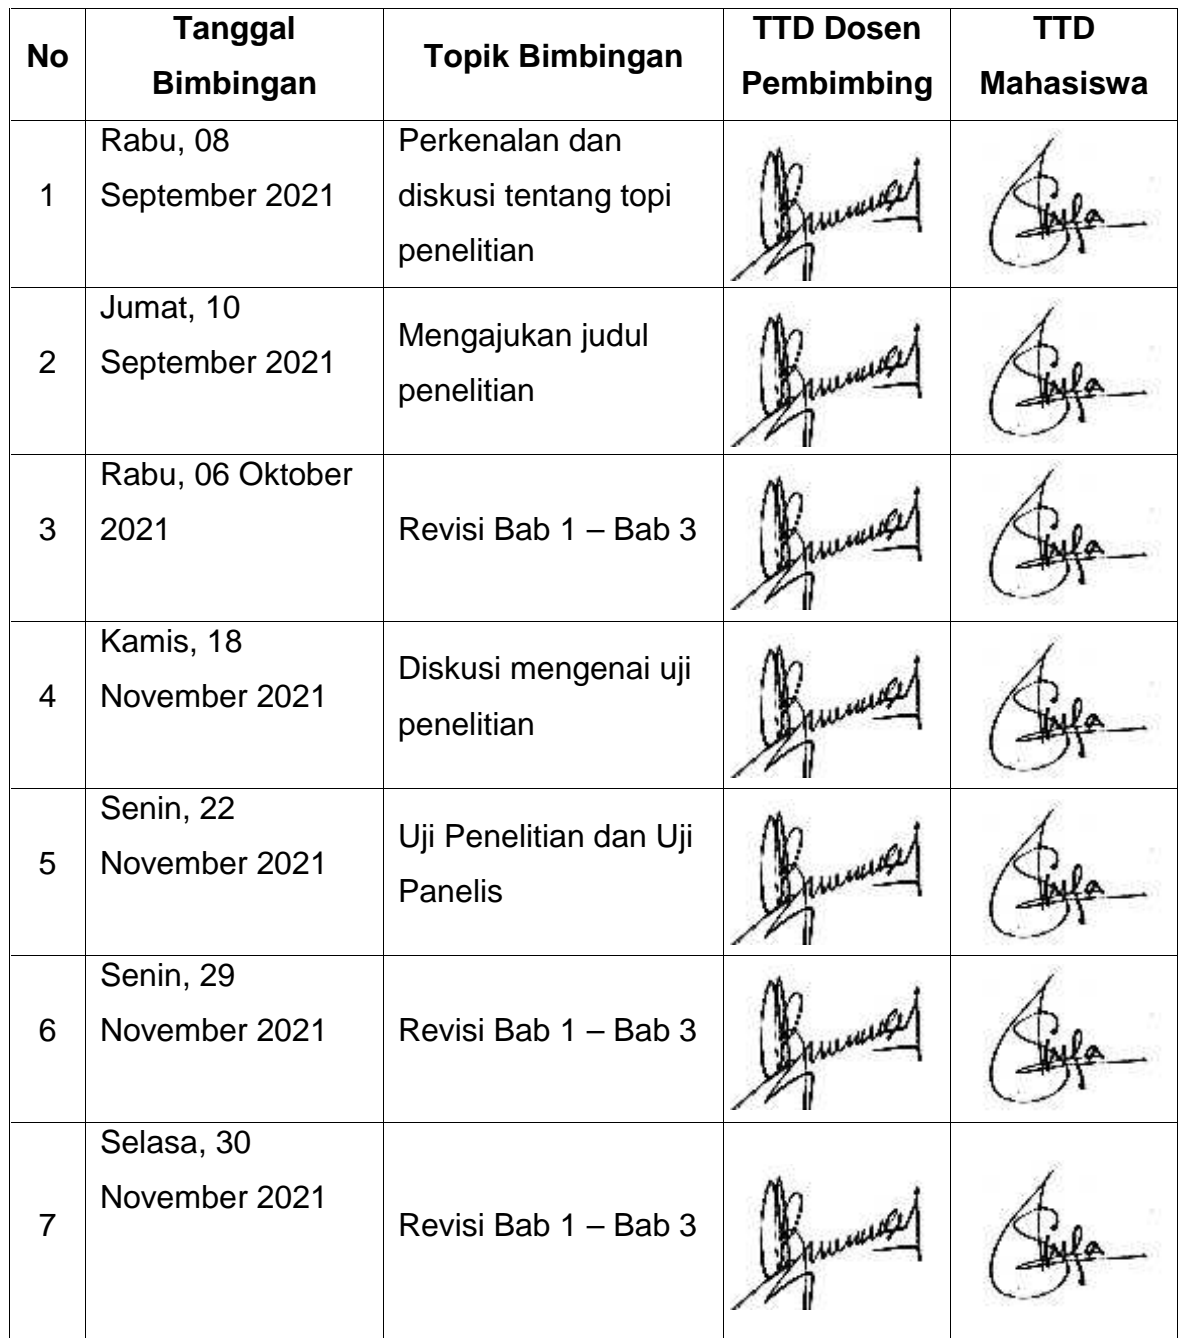 No
Tanggal
Bimbingan
Topik Bimbingan
TTD Dosen
Pembimbing
TTD
Mahasiswa
1
Rabu, 08
September 2021
Perkenalan dan
diskusi tentang topi
penelitian
2
Jumat, 10
September 2021
Mengajukan judul
penelitian
3
Rabu, 06 Oktober
2021
Revisi Bab 1 – Bab 3
4
Kamis, 18
November 2021
Diskusi mengenai uji
penelitian
5
Senin, 22
November 2021
Uji Penelitian dan Uji
Panelis
6
Senin, 29
November 2021
Revisi Bab 1 – Bab 3
7
Selasa, 30
November 2021
Revisi Bab 1 – Bab 3